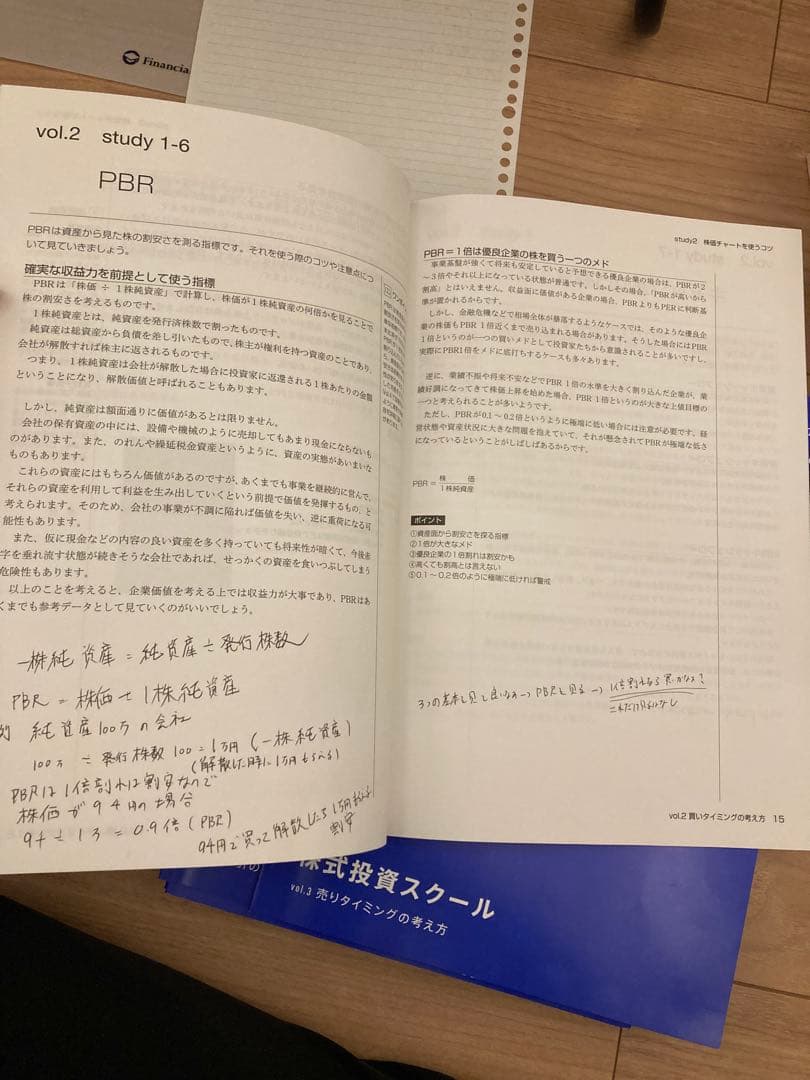 Financial
vol.2 study 1-6
PBR
PBRは資産から見た株の割安さを測る指標です。それを使う際のコツや注意点につ
いて見ていきましょう。
確実な収益力を前提として使う指標
PBRは「株価 ÷ 1株純資産」で計算し、株価が1株純資産の何倍かを見ることで
株の割安さを考えるものです。
1株純資産とは、純資産を発行済株数で割ったものです。
純資産は総資産から負債を差し引いたもので、株主が権利を持つ資産のことであり、
会社が解散すれば株主に返されるものです。
つまり、1株純資産は会社が解散した場合に投資家に返還される1株あたりの金額
ということになり、解散価値と呼ばれることもあります。
しかし、純資産は額面通りに価値があるとは限りません。
会社の保有資産の中には、設備や機械のように売却してもあまり現金にならないも
のがあります。また、のれんや繰延税金資産というように、資産の実態があいまいな
ものもあります。
これらの資産にはもちろん価値があるのですが、あくまでも事業を継続的に営んで、
それらの資産を利用して利益を生み出していくという前提で価値を発揮するもの、と
考えられます。そのため、会社の事業が不調に陥れば価値を失い、逆に重荷になる可
能性もあります。
また、仮に現金などの内容の良い資産を多く持っていても将来性が暗くて、今後赤
字を垂れ流す状態が続きそうな会社であれば、せっかくの資産を食いつぶしてしまう
危険性もあります。
以上のことを考えると、企業価値を考える上では収益力が大事であり、PBRはあ
くまでも参考データとして見ていくのがいいでしょう。
一株純資産 = 純資産 ÷ 発行株数
PBR = 株価 ÷ 1株純資産
純資産100万の会社
100万 ÷ 発行株数 100 = 1万円 (一株純資産)
(解散した時に1万円もらえる)
PBRは1倍割れは割安なので
株価が94円の場合
94 ÷ 1 = 0.9倍 (PBR)
94円で買って解散したら1万円
割安
study2 株価チャートを使うコツ
PBR＝1倍は優良企業の株を買う一つのメド
事業基盤が強くて将来も安定していると予想できる優良企業の場合は、PBRが2
～3倍やそれ以上になっている状態が普通です。しかしその場合、「PBRが高いから
割高」とはいえません。収益面に価値がある企業の場合、PBRよりもPERに判断基
準が置かれるからです。
しかし、金融危機などで相場全体が暴落するようなケースでは、そのような優良企
業の株価もPBR 1倍近くまで売り込まれる場合があります。そうした場合にはPBR
1倍というのが一つの買いメドとして投資家たちから意識されることが多いですし、
実際にPBR1倍をメドに底打ちするケースも多々あります。
逆に、業績不振や将来不安などでPBR 1倍の水準を大きく割り込んだ企業が、業
績好調になってきて株価上昇を始めた場合、PBR 1倍というのが大きな上値目標の
一つと考えられることが多いようです。
ただし、PBRが0.1～0.2倍というように極端に低い場合には注意が必要です。経
営状態や資産状況に大きな問題を抱えていて、それが懸念されてPBRが極端な低さ
になっているということがしばしばあるからです。
PBR＝ 株 価
1株純資産
ポイント
①資産面から割安さを探る指標
②1倍が大きなメド
③優良企業の1倍割れは割安かも
④高くても割高とは言えない
⑤0.1～0.2倍のように極端に低ければ警戒
3つの基本を見て良いなら→PBRを見る→1倍割れなら買いかな?
vol.2 買いタイミングの考え方 15
株式投資スクール
vol.3 売りタイミングの考え方